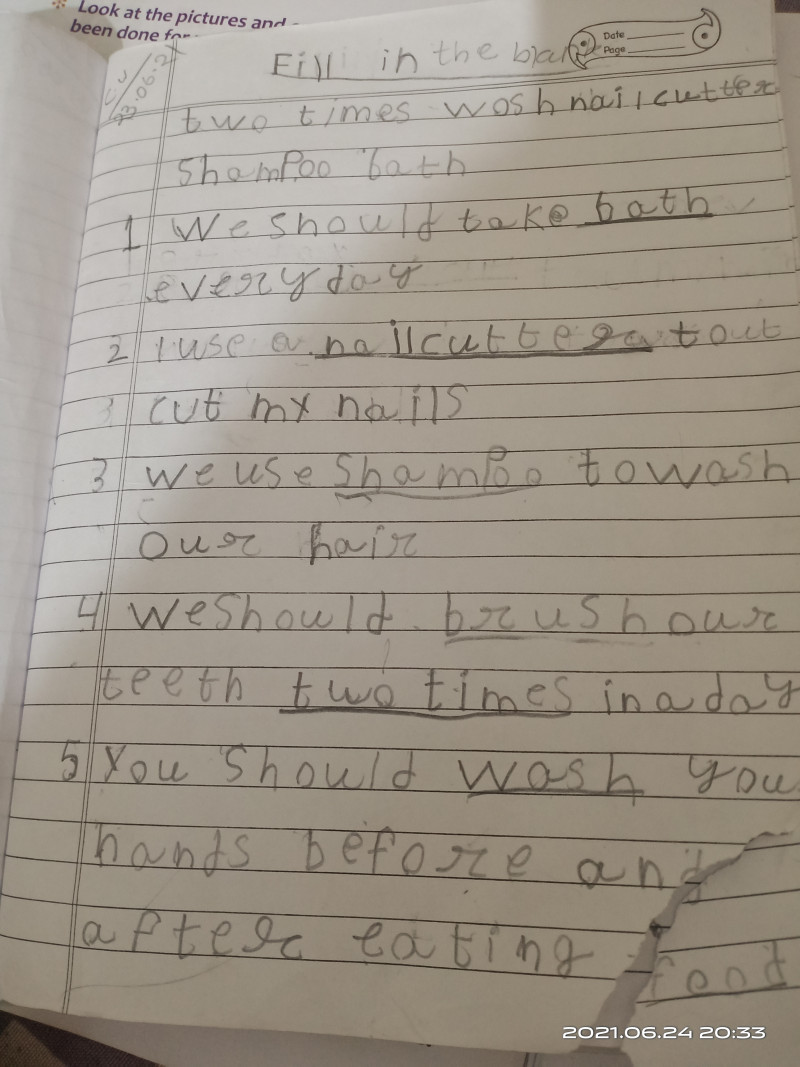 Look at the pictures and
been done for
Date
Page
Fill in the
two times wosh nailcutter
ShamPoo bath
1 We should take bath
everyday
2 I use a nailcutter tout
cut my nails
3 we use ShamPoo to wash
our hair
4 We Should brush our
teeth two times in a day
5 You Should wash you
hands before and
after eating food
2021.06.24 20:33